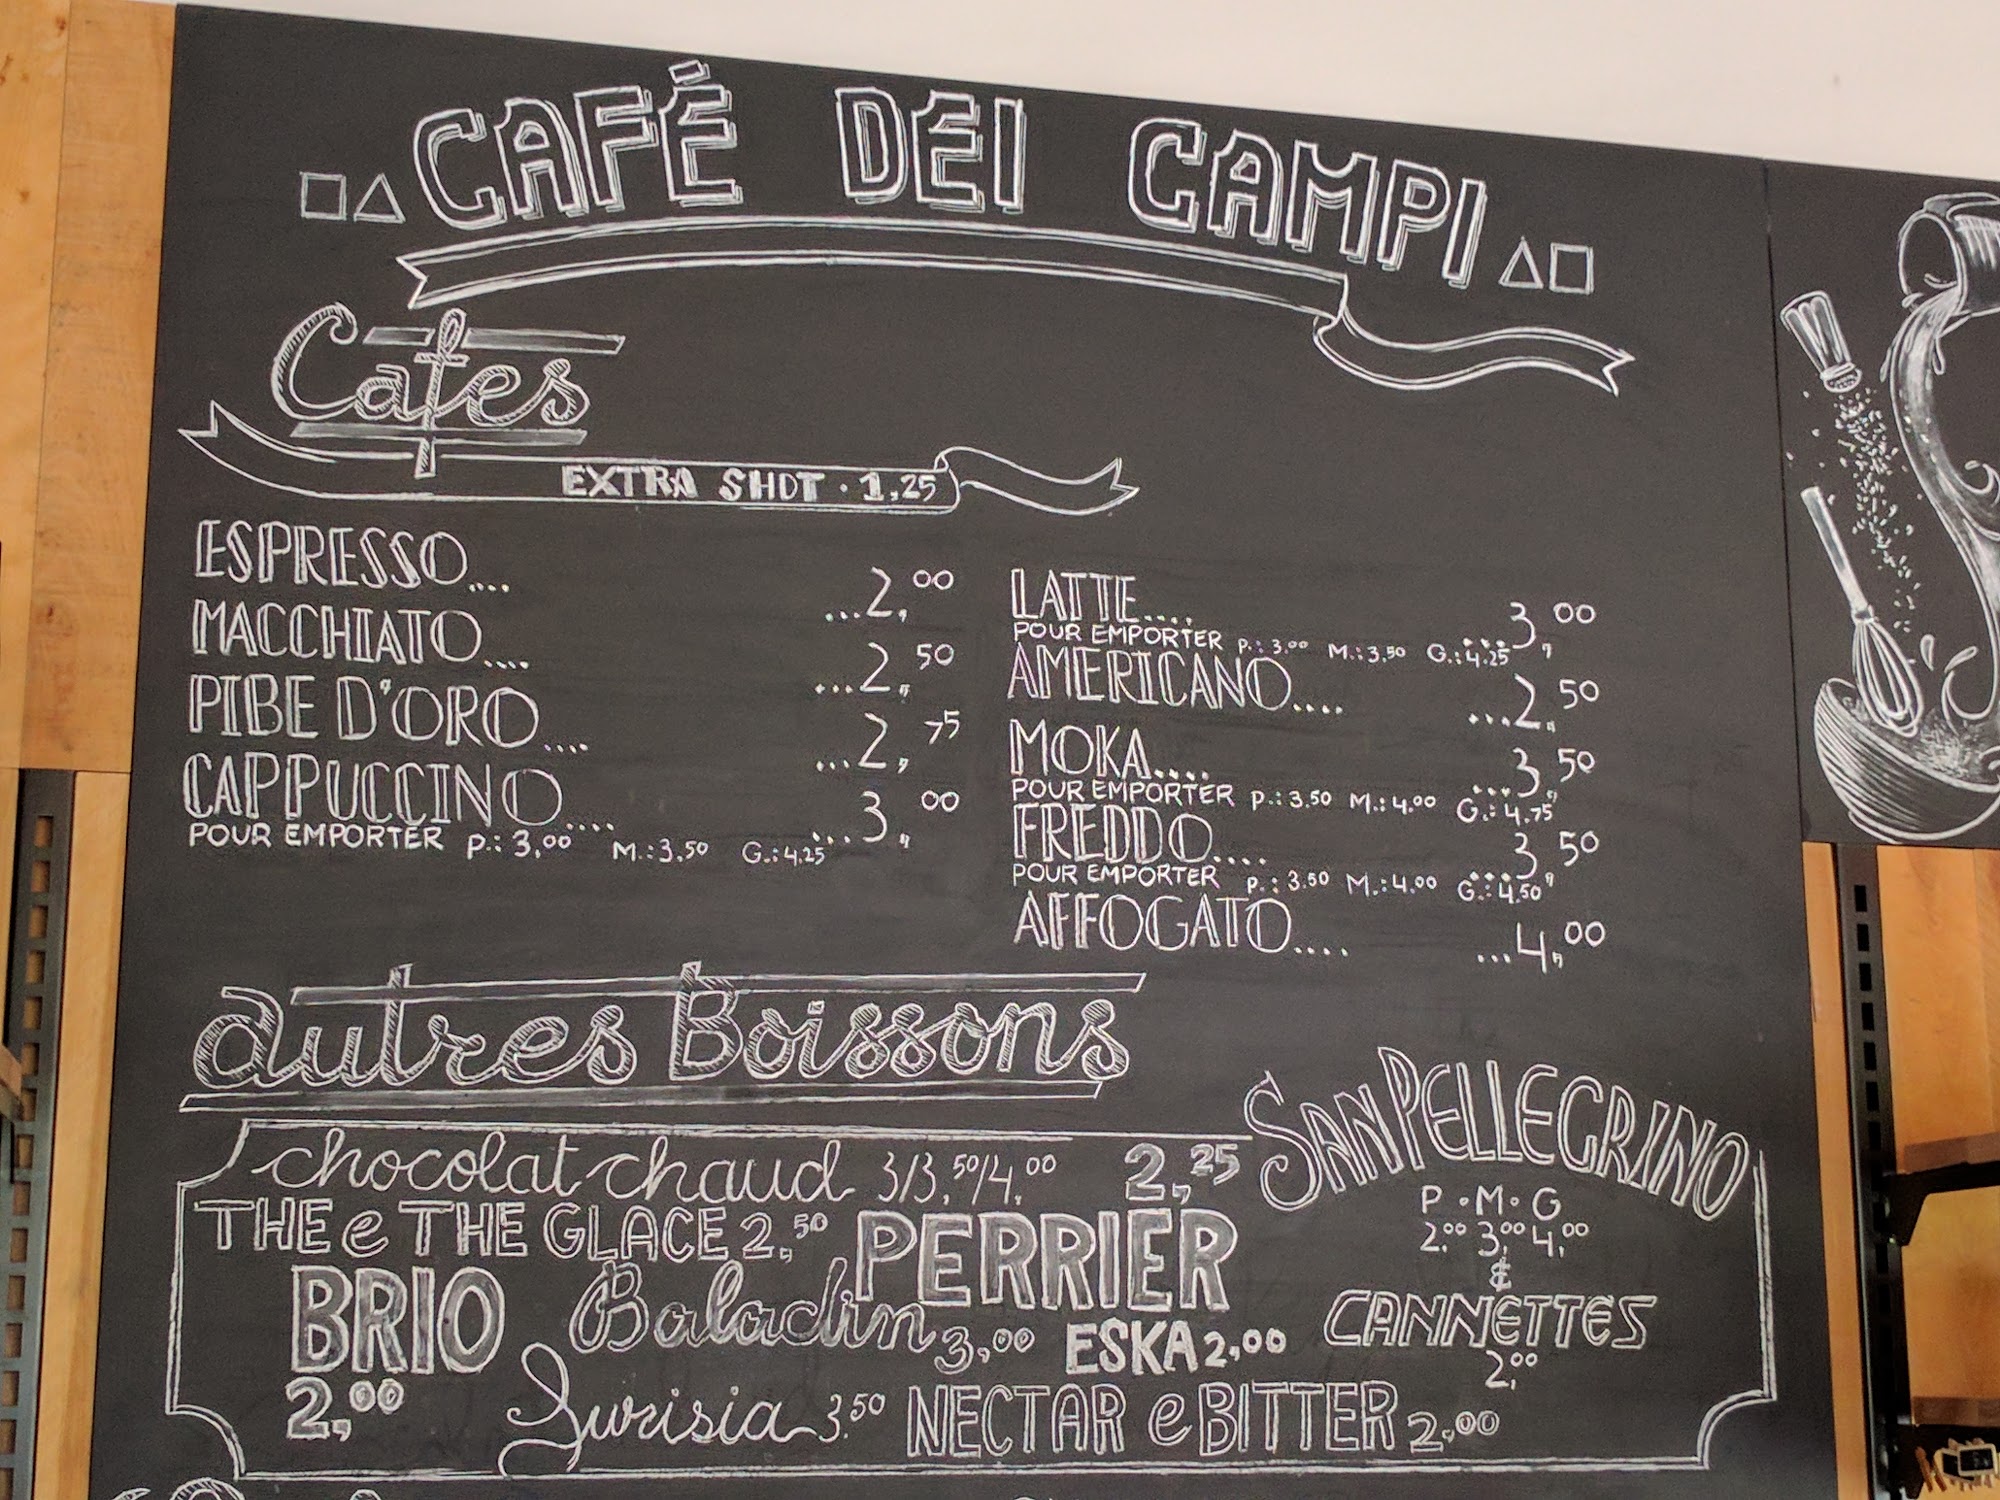 CAFÉ DEI CAMPI
Cafes
EXTRA SHOT · 1,25
ESPRESSO.... ...2,00
MACCHIATO.... ...2,50
PIBE D'ORO.... ...2,75
CAPPUCCINO.... ...3,00
POUR EMPORTER P.: 3,00 M.: 3,50 G.: 4,25
LATTE.... ...3,00
POUR EMPORTER P.: 3,00 M.: 3,50 G.: 4,25
AMERICANO.... ...2,50
MOKA.... ...3,50
POUR EMPORTER P.: 3.50 M.: 4.00 G.: 4,75
FREDDO.... ...3,50
POUR EMPORTER P.: 3.50 M.: 4.00 G.: 4.50
AFFOGATO.... ...4,00
autres Boissons
chocolat chaud 3/3,50/4,00
THE e THE GLACE 2,50
2,25 PERRIER
SANPELLEGRINO
P · M · G
2,00 3,00 4,00
&
CANNETTES
2,00
BRIO
2,00
Baladin 3,00
ESKA 2,00
Lurisia 3.50
NECTAR e BITTER 2,00